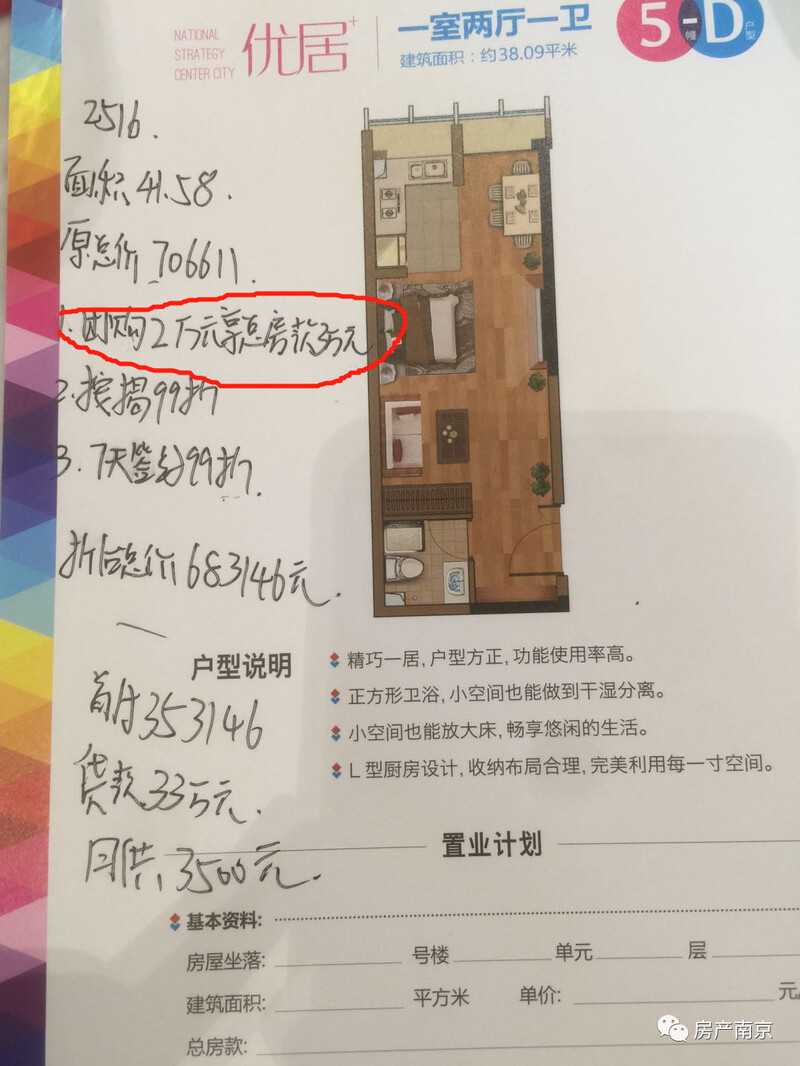 NATIONAL
STRATEGY
CENTER CITY
优居+
一室两厅一卫
建筑面积：约38.09平米
5-D
幢
户型
2516.
面积 41.58.
原总价 706611.
1.团购2万元享总房款3万元
2.按揭99折
3.7天签约99折.
折后总价683146元.
首付353146
贷款33万元.
月供3500元.
户型说明
精巧一居，户型方正，功能使用率高。
正方形卫浴，小空间也能做到干湿分离。
小空间也能放大床，畅享悠闲的生活。
L型厨房设计，收纳布局合理，完美利用每一寸空间。
置业计划
基本资料:
房屋坐落: 号楼 单元 层
建筑面积: 平方米 单价: 元/
总房款:
房产南京